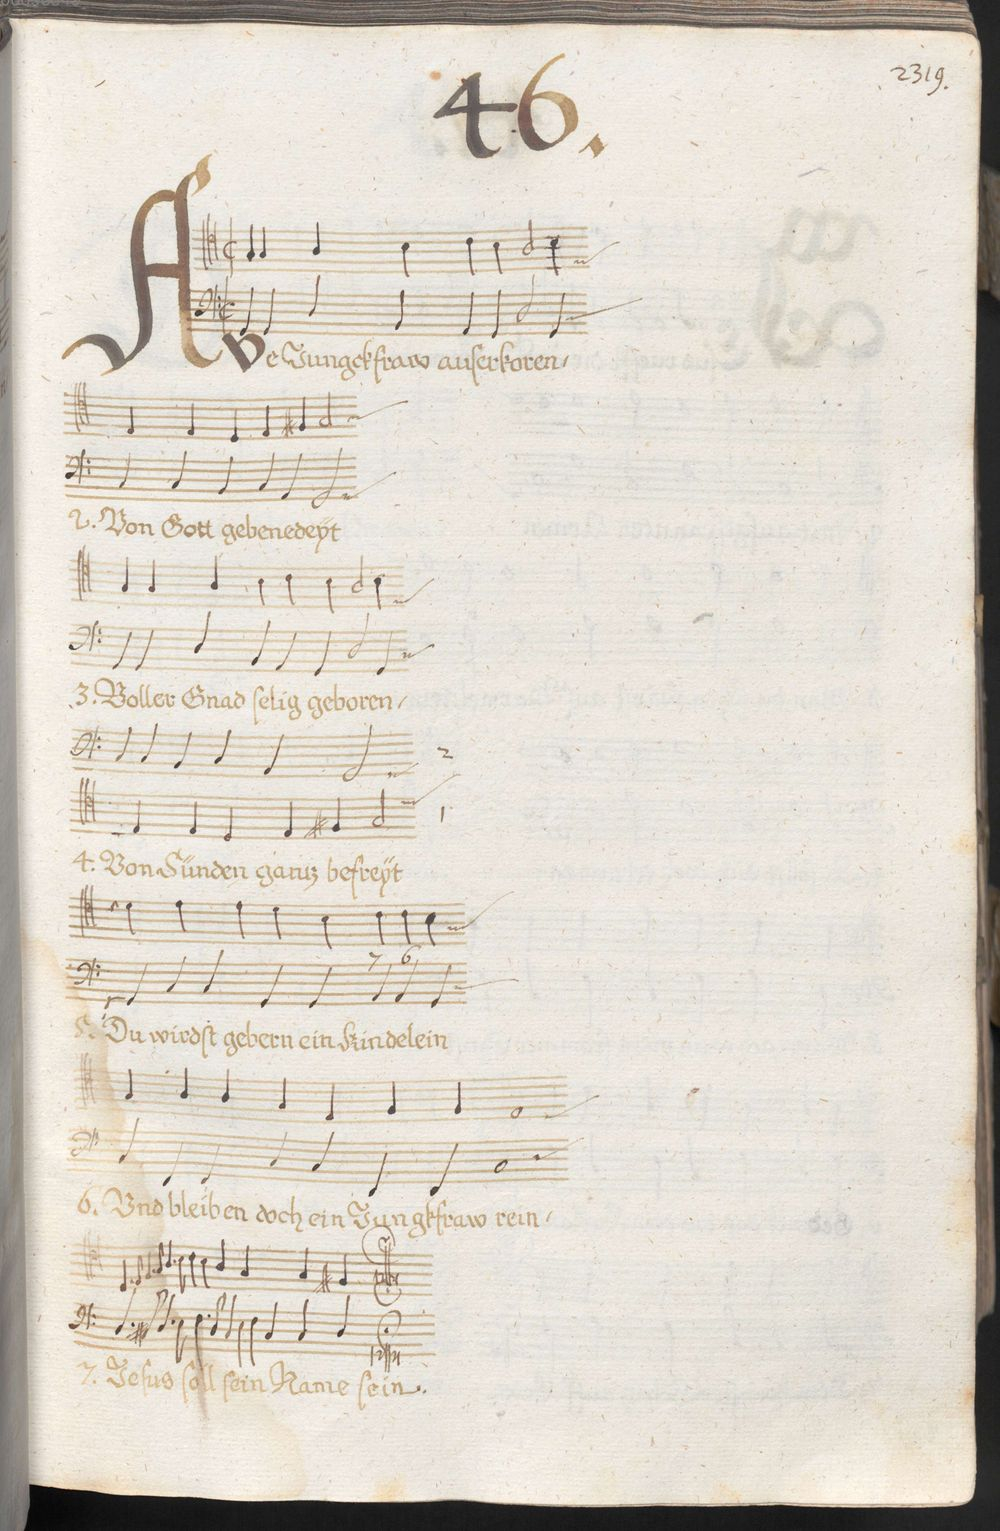 2319.
46.
Ave Jungckfraw auserkoren/
2. Von Gott gebenedeÿt
3. Voller Gnad selig geboren/
2
1
4. Von Sünden gantz befreÿt
7 6
5. Du wirdst gebern ein Kindelein
6. Vnd bleiben doch ein Jungkfraw rein/
7. Jesus soll sein Name sein.